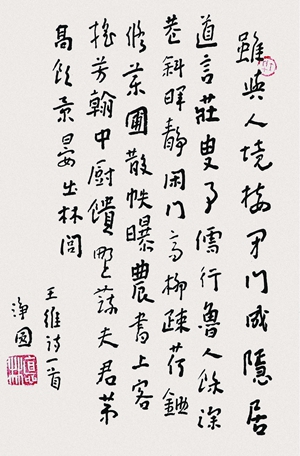 雖與人境接閉門成隱居
道言莊叟事儒行魯人餘深
巷斜暉靜閑門高柳疎荷鋤
修藥圃散帙曝農書上客
搖芳翰中厨饋野蔬夫君苐
高飲景晏出林閭
王維詩一首
淨